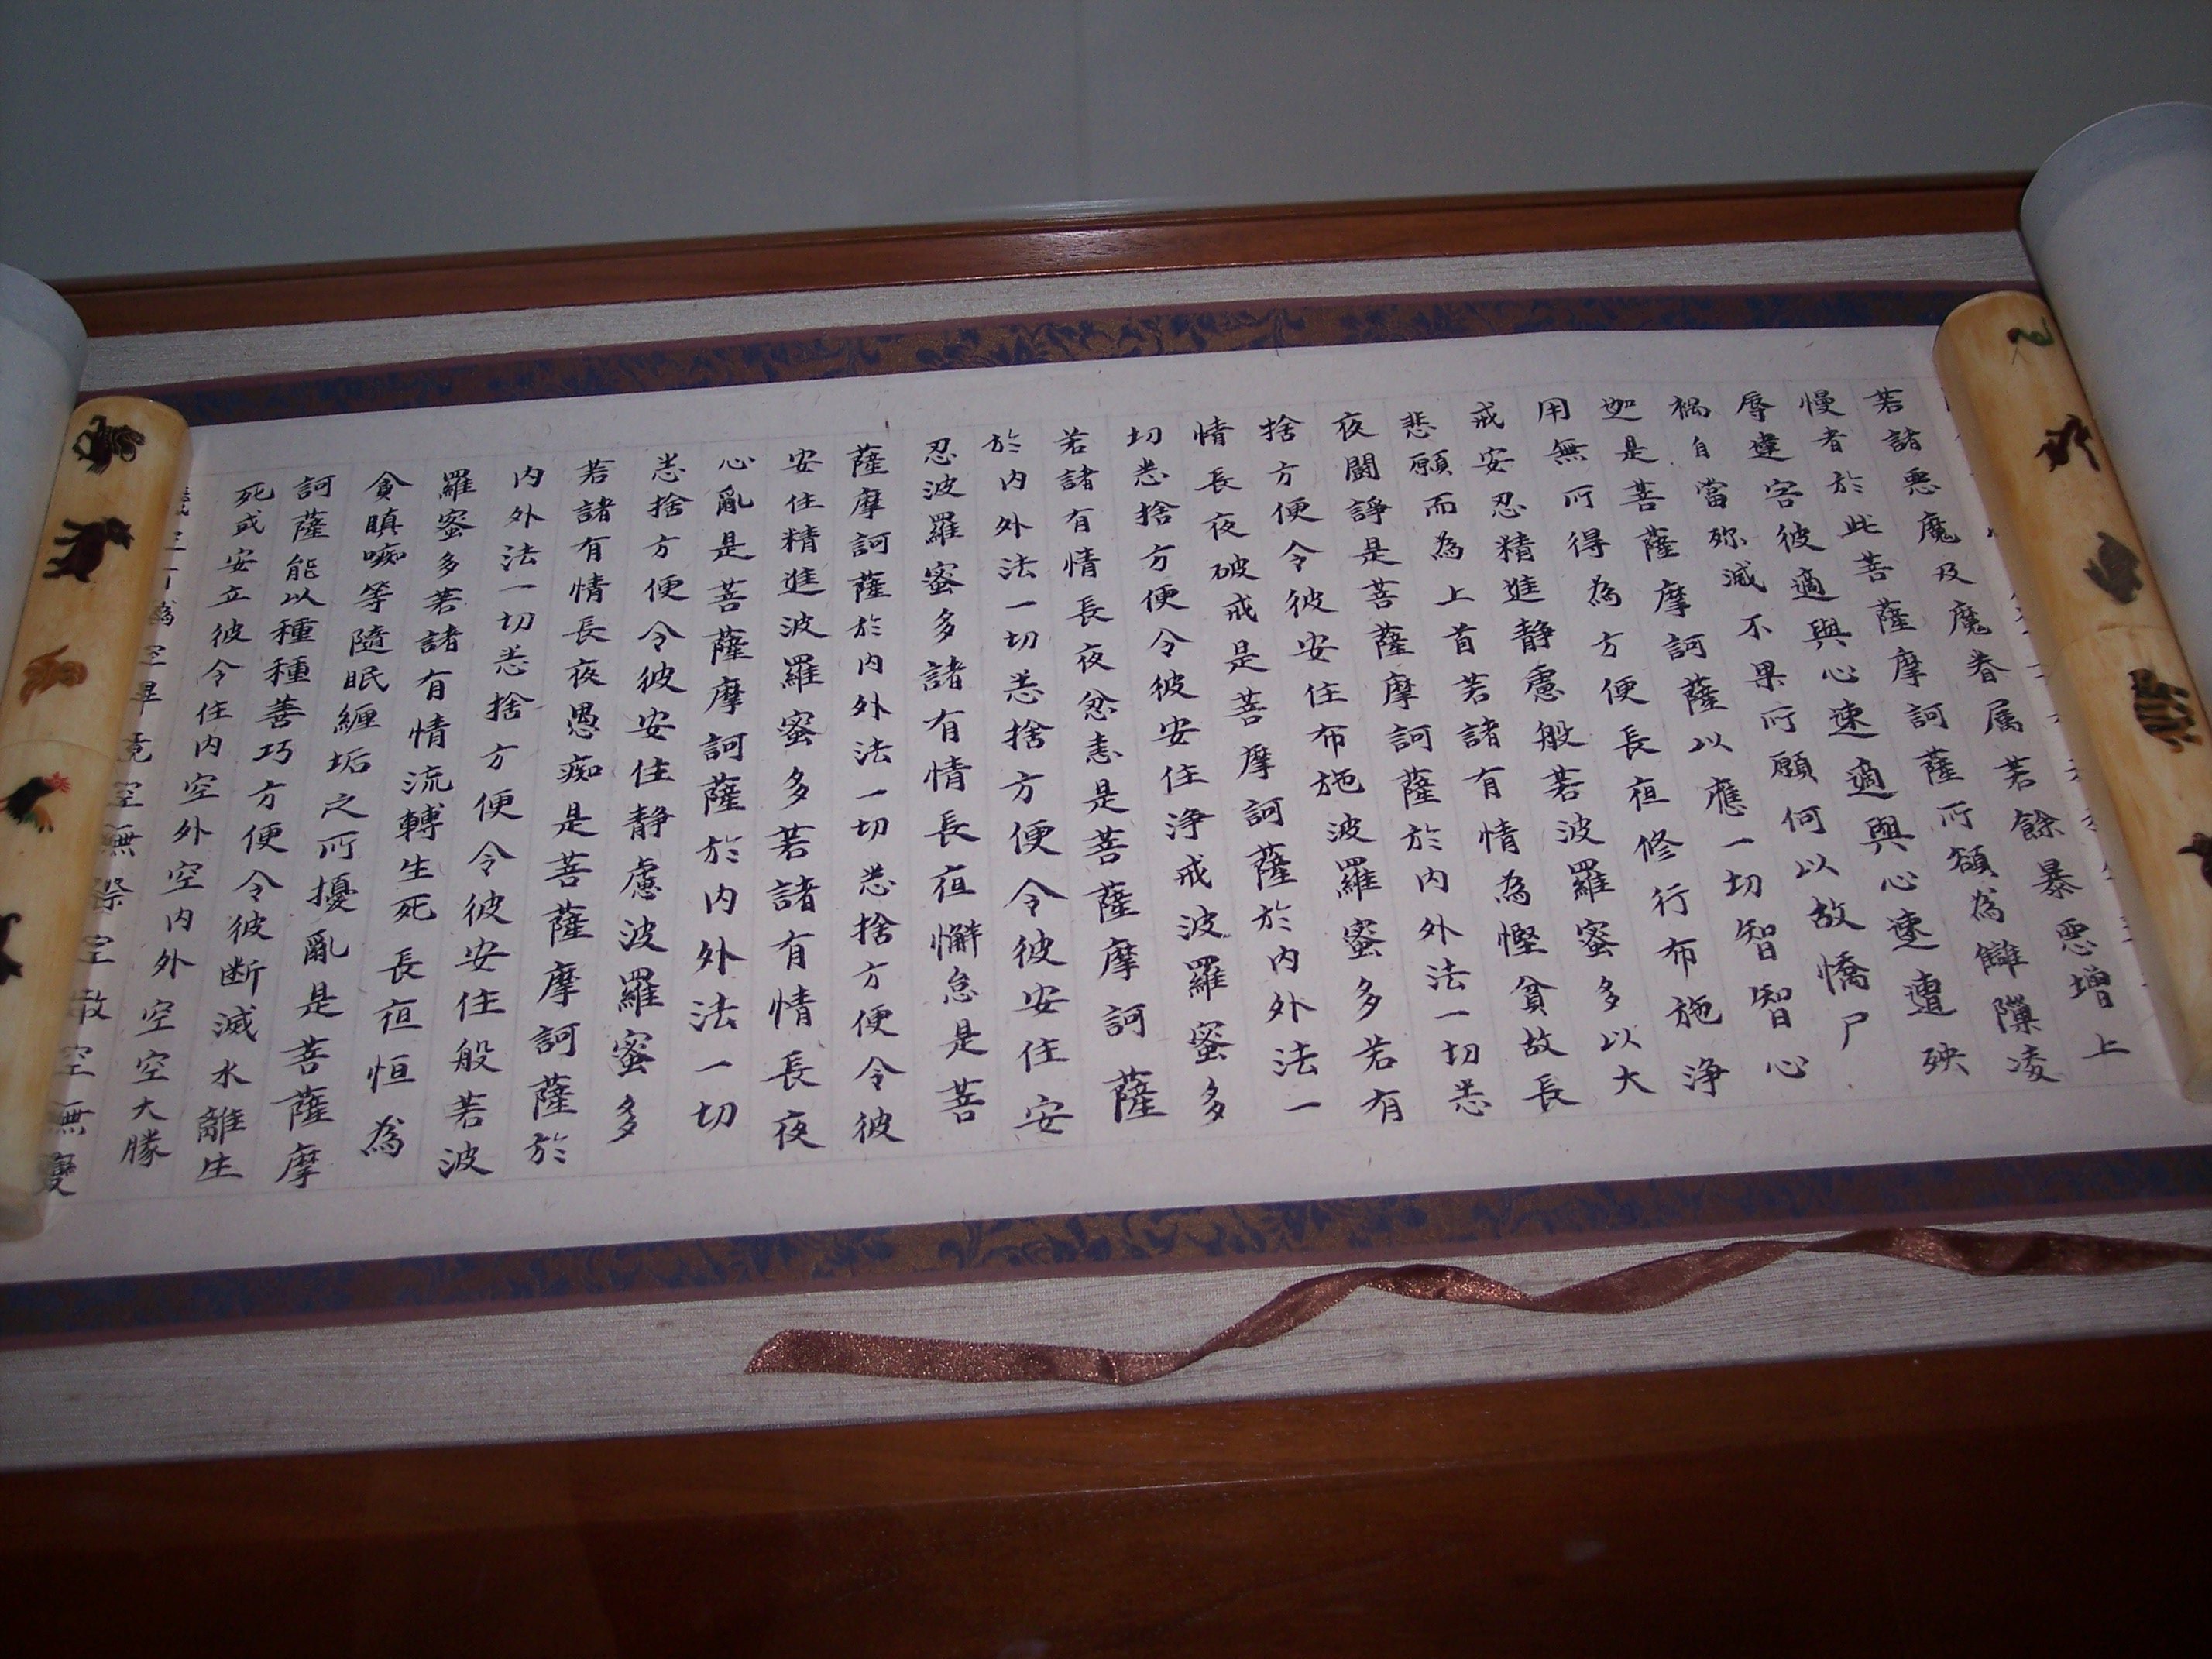 若諸惡魔及魔眷属若餘暴惡增上
慢者於此菩薩摩訶薩所額為讎隟凌
辱違害彼適與心速適與心速遭殃
禍自當殄滅不果所願何以故憍尸
迦是菩薩摩訶薩以應一切智智心
用無所得為方便長夜修行布施淨
戒安忍精進静慮般若波羅蜜多以大
悲願而為上首若諸有情為慳貧故長
夜鬪諍是菩薩摩訶薩於内外法一切悉
捨方便令彼安住布施波羅蜜多若有
情長夜破戒是菩摩訶薩於内外法一
切悉捨方便令彼安住淨戒波羅蜜多
若諸有情長夜忿恚是菩薩摩訶薩
於内外法一切悉捨方便令彼安住安
忍波羅蜜多諸有情長夜懈怠是菩
薩摩訶薩於内外法一切悉捨方便令彼
安住精進波羅蜜多若諸有情長夜
心亂是菩薩摩訶薩於内外法一切
悉捨方便令彼安住静慮波羅蜜多
若諸有情長夜愚痴是菩薩摩訶薩於
内外法一切悉捨方便令彼安住般若波
羅蜜多若諸有情流轉生死長夜恒為
貪瞋癡等隨眠纏垢之所擾亂是菩薩摩
訶薩能以種種善巧方便令彼断滅水離生
死或安立彼令住内空外空内外空空空大勝
為空畢竟空無際空散空無變